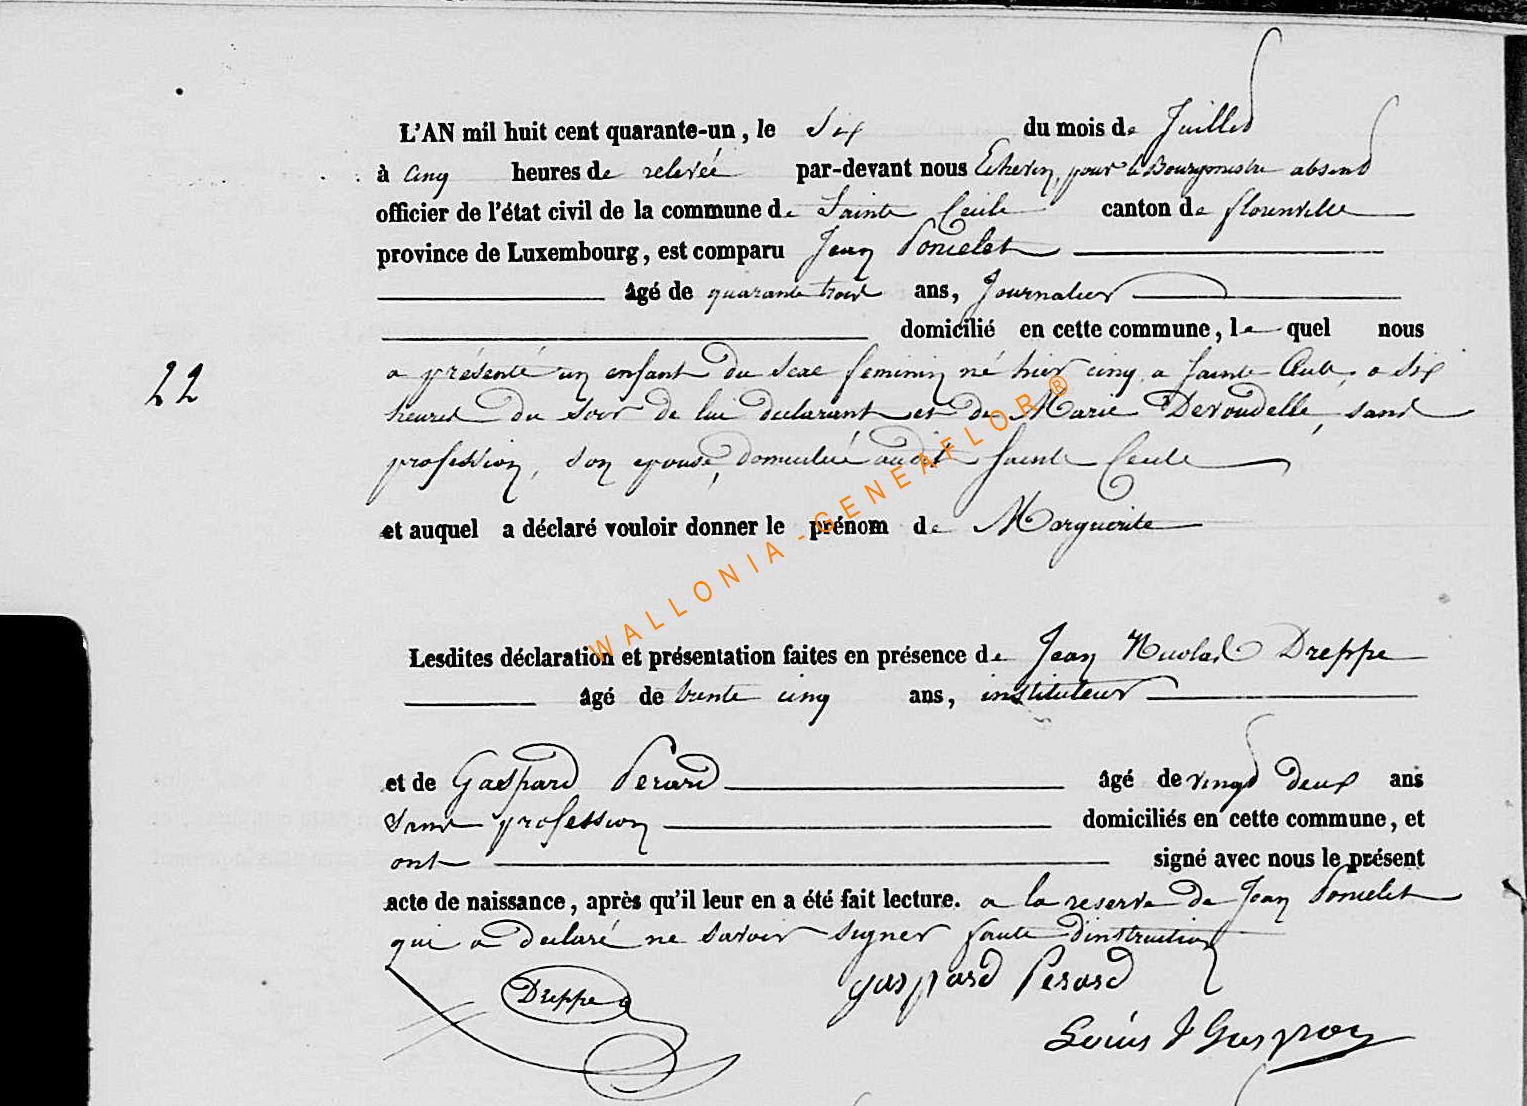 L'AN mil huit cent quarante-un, le Six du mois de Juillet
à cinq heures de relevée par-devant nous Echevin, pour le Bourgmestre absent
officier de l'état civil de la commune de Sainte Cecile canton de florenville
province de Luxembourg, est comparu Jean Poncelet
âgé de quarante trois ans, Journalier
domicilié en cette commune, le quel nous
22
a présenté un enfant du sexe feminin né hier cinq, a Sainte Cecile, a Six
heures du soir de lui declarant et de Marie Devoudelle, sans
profession, son epouse, domiciliée audit Sainte Cecile
et auquel a déclaré vouloir donner le prénom de Marguerite
WALLONIA-GENEAFLOR®
Lesdites déclaration et présentation faites en présence de Jean Nicolas Dreppe
âgé de trente cinq ans, instituteur
et de Gaspard Perard âgé de vingt deux ans
sans profession domiciliés en cette commune, et
ont signé avec nous le présent
acte de naissance, après qu'il leur en a été fait lecture. a la reserve de Jean Poncelet
qui a declaré ne savoir signer faute d'instruction
Dreppe gaspard Perard
Louis J